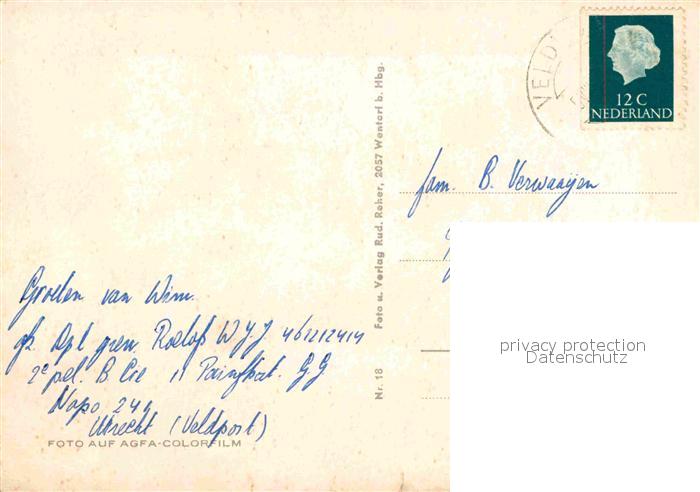 VELD
12 C
NEDERLAND
fam. B. Verwaaijen
Groeten van Wim.
Dpl gren. Roelofs W J J 461212414
2e pel. B. Cie 11 Painfbat. GG
Napo 249
Utrecht (Veldpost)
FOTO AUF AGFA-COLORFILM
Nr. 18 Foto u. Verlag Rud. Reher, 2057 Wentorf b. Hbg.
privacy protection
Datenschutz